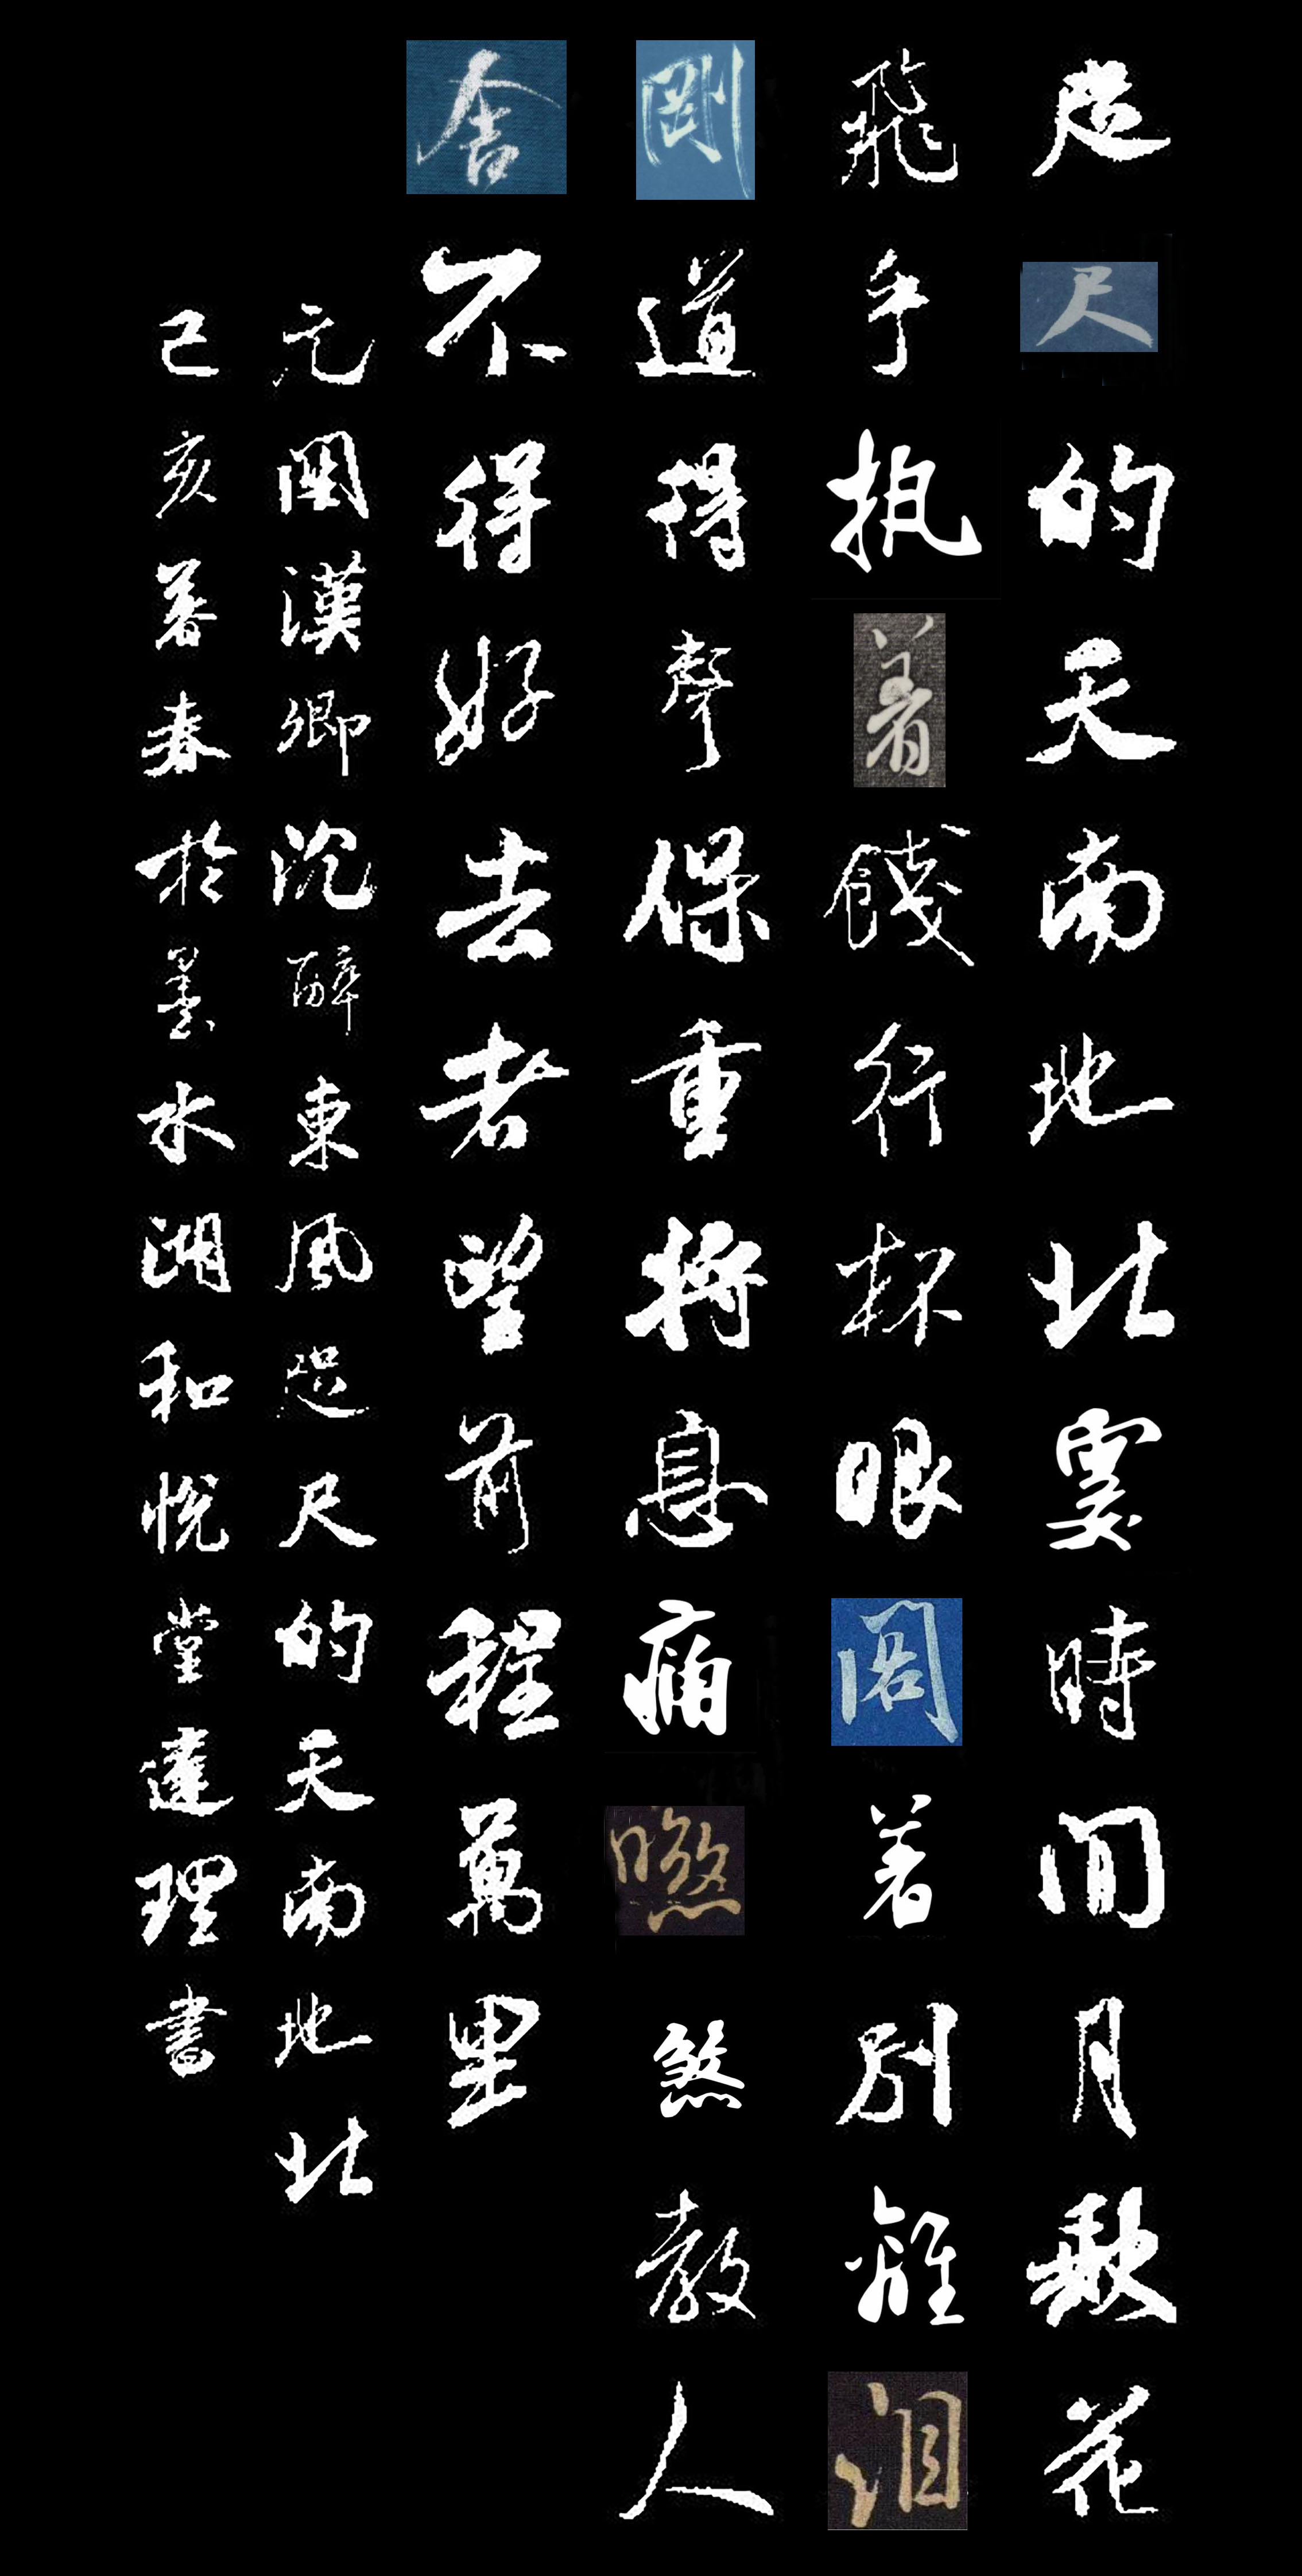 咫尺的天南地北霎時間月缺花
飛手执着餞行杯眼閣着別離泪
剛道得聲保重將息痛煞煞教人
舍不得好去者望前程萬里
元關漢卿沉醉東風咫尺的天南地北
己亥暮春於墨水湖和悅堂達理書